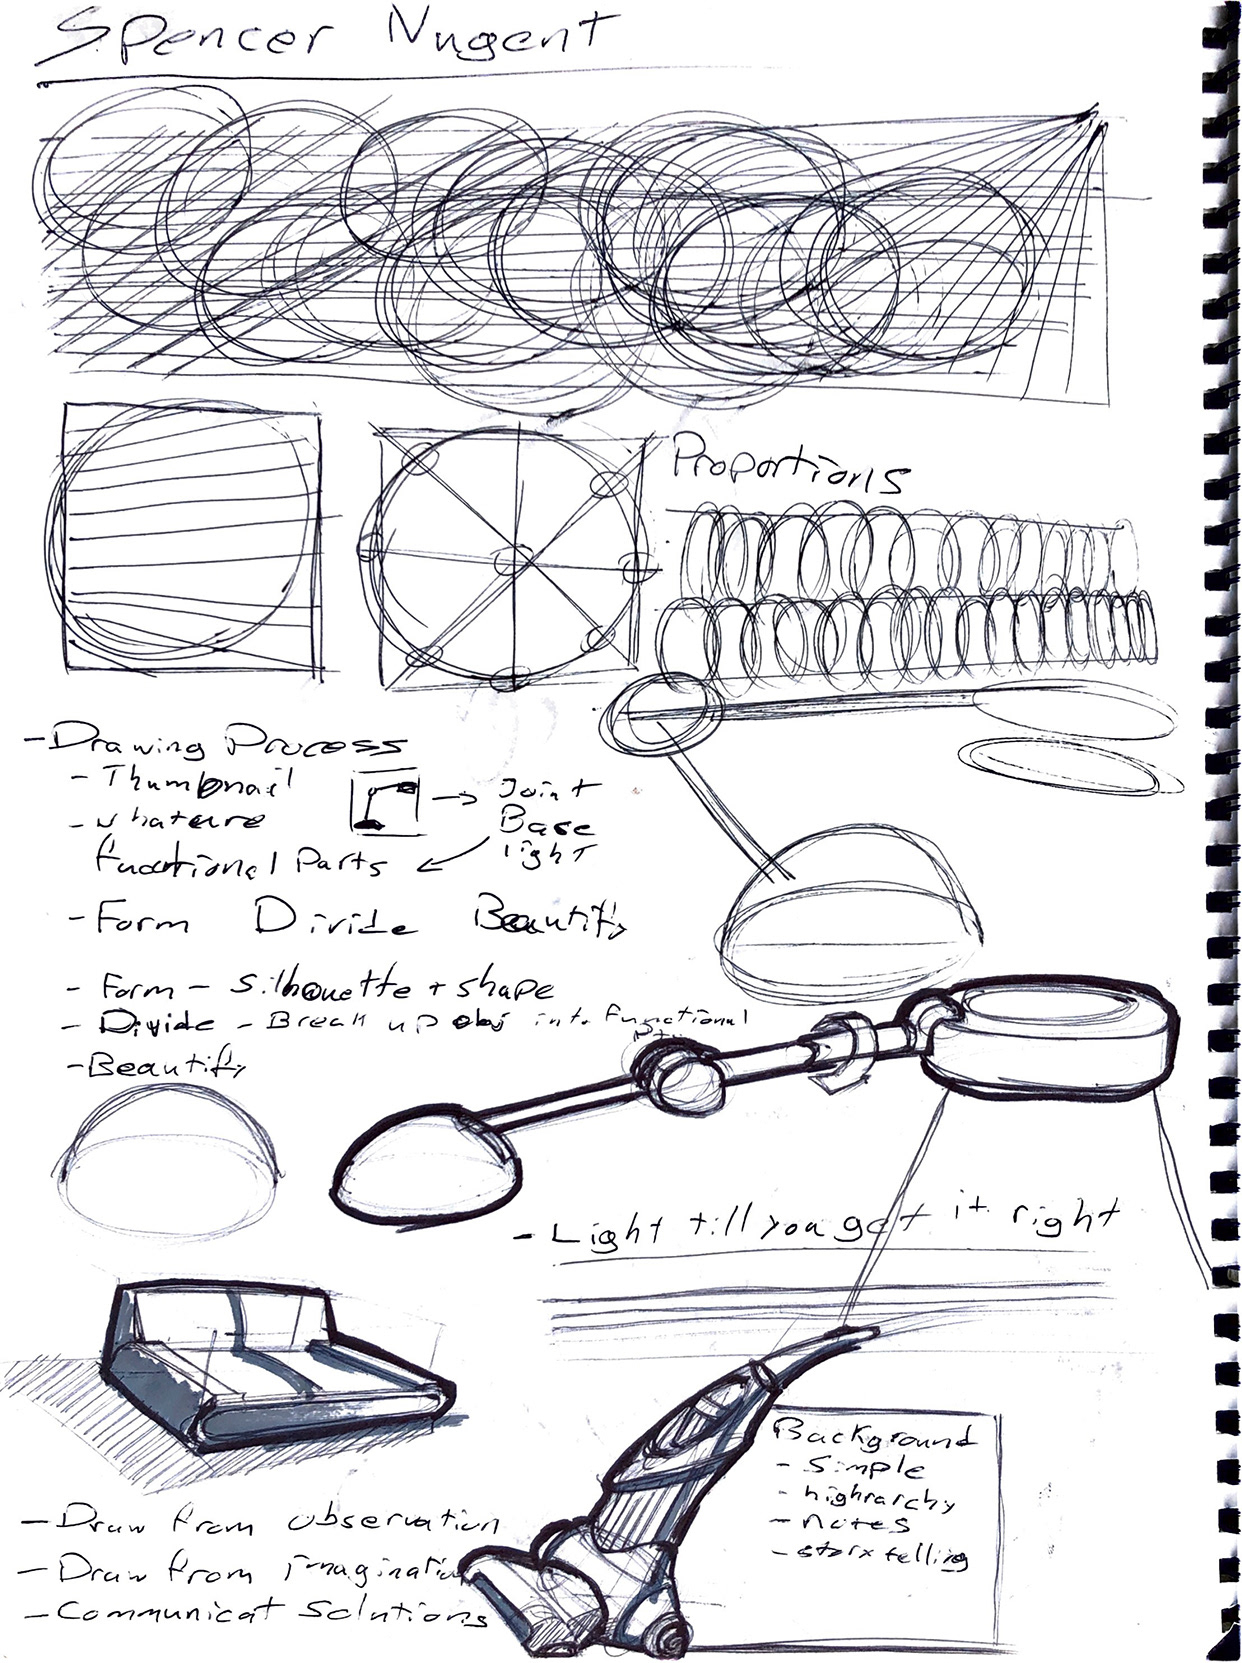 Spencer Nugent
Proportions
- Drawing Process
- Thumbnail
- what are
functional Parts
Joint
Base
light
- Form Divide Beautify
- Form - Silhouette + shape
- Divide - Break up obj into functional
- Beautify
- Light till you get it right
Background
- Simple
- highrarchy
- notes
- story telling
- Draw from observation
- Draw from imagination
- Communicat Solutions